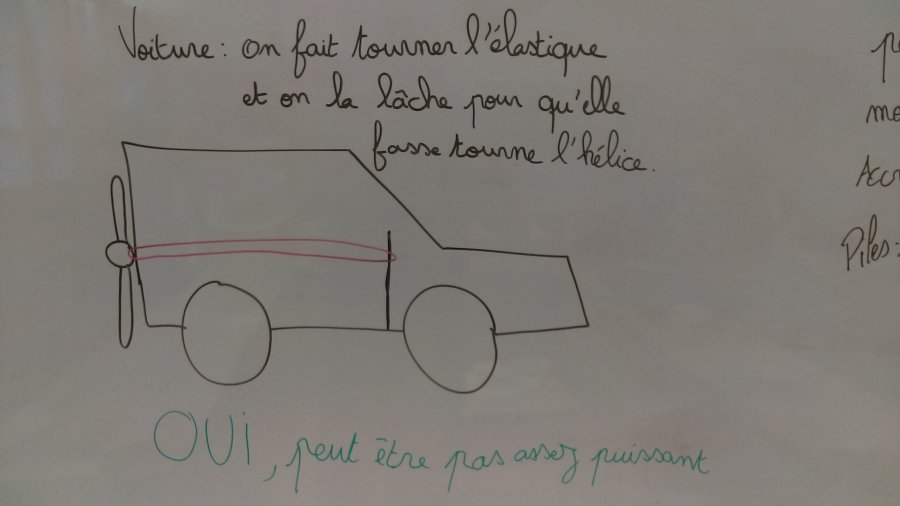 Voiture : on fait tourner l'élastique
et on la lâche pour qu'elle
fasse tourne l'hélice.
Piles :
OUI, peut être pas assez puissant